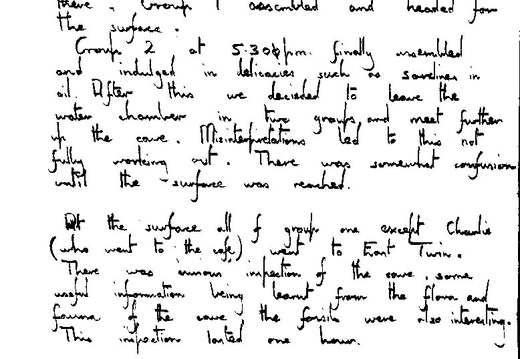 there. Group 1 assembled and headed for
the surface.
Group 2 at 5.30pm. finally assembled
and indulged in delicacies such as sardines in
oil. After this we decided to leave the
water chamber in two groups and meet further
up the cave. Misinterpretations led to this not
fully working out. There was somewhat confusion
until the surface was reached.
At the surface all of group one except Charlie
(who went to the cafe) went to East Twin.
There was inspection of the cave, some
useful information being learnt from the flora and
fauna of the cave, the fossils were also interesting.
This inspection lasted one hour.